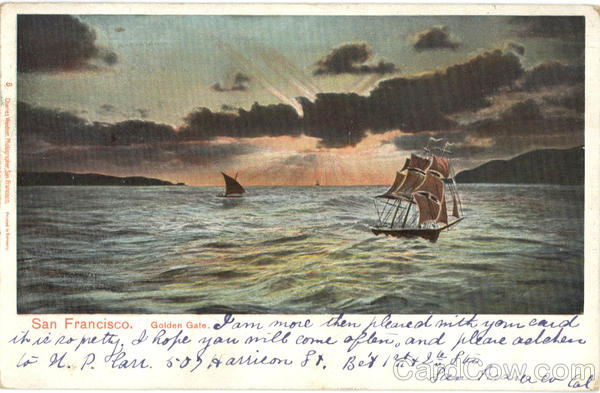 San Francisco. Golden Gate. I am more then pleased with your card
it is so pretty. I hope you will come often, and please
to H. P. 509 Harrison St. Bet 1st & 2nd Sts
San Francisco Cal
8 Charles Weidner, Photographer, San Francisco. Printed in Germany
CardCow.com